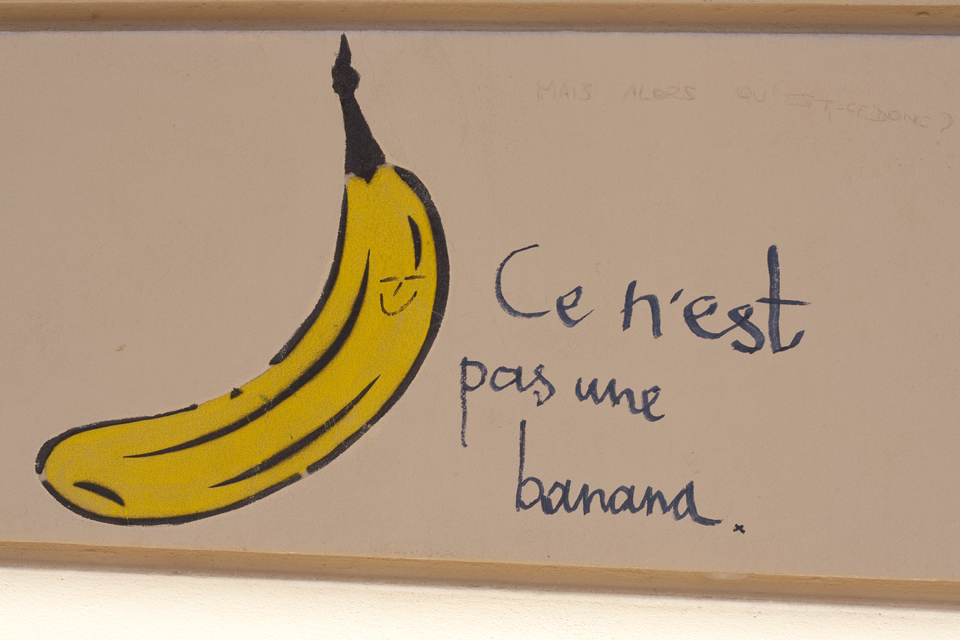 MAIS ALORS QU'EST-CE DONC?
Ce n'est
pas une
banana.